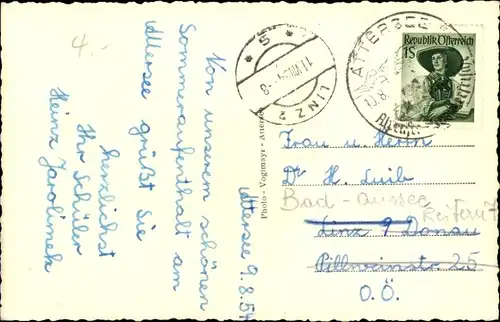 4.-
Von unserem schönen
Sommeraufenthalt am
Attersee grüßt Sie
herzlichst
Ihr Schüler
Heinz Jarolimek
Attersee 9.8.54
Photo - Voglmayr - Attersee
S
LINZ 2
ATTERSEE
10.8.
Republik Österreich
1S
Frau u. Herrn
Dr H. Luib
Bad-Aussee
Linz 9 Donau
Pillweinstr 25
O.Ö.